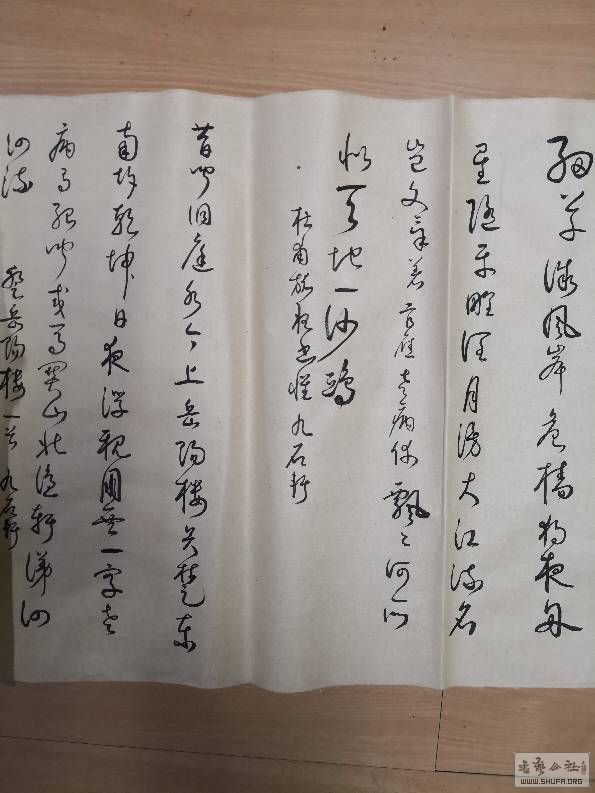 细草微风岸危樯独夜舟
星随平野阔月涌大江流名
岂文章著官应老病休飘々何所
似天地一沙鸥
杜甫旅夜书怀九石轩
昔闻洞庭水今上岳阳楼吴楚东
南坼乾坤日夜浮亲朋无一字老
病有孤舟戎马关山北凭轩涕泗
泗流 登岳阳楼一首 九石轩
书艺公社
WWW.SHUFA.ORG